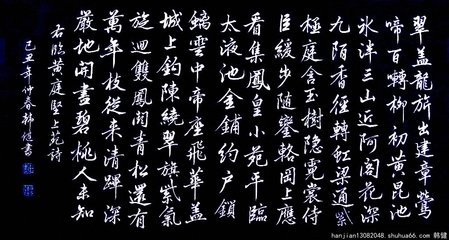 翠盖龍旂出建章鶯
啼百囀柳初黄昆池
冰泮三山近阿閣花深
九陌香徑轉虹梁通紫
極庭含玉樹隐霓裳侍
臣緩步随鑾輅岡上應
看集鳳皇小苑平臨
太液池金鋪約户鎖
螭雲中帝座飛華盖
城上鈎陳繞翠旗紫氣
旋迴雙鳳闕青松還有
萬年枝從来清蹕深
嚴地開盡碧桃人未知
右臨黄庭堅上苑詩
己丑年仲春韩健書
hanjian13082048. shuhua66.com 韩健